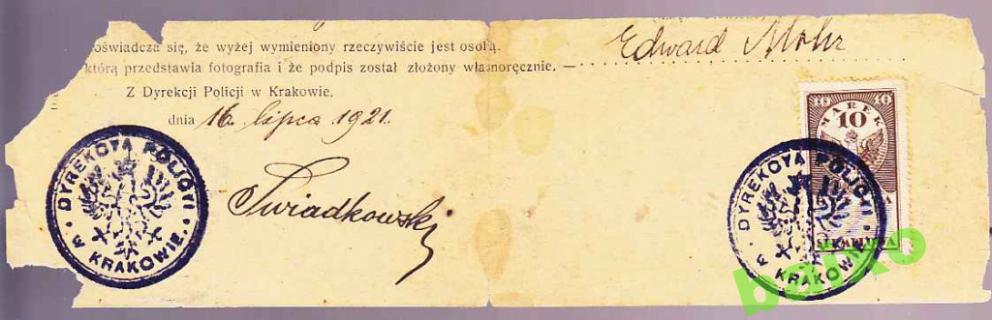 Edward Mohr
oświadcza się, że wyżej wymieniony rzeczywiście jest osobą,
którą przedstawia fotografia i że podpis został złożony własnoręcznie. —
Z Dyrekcji Policji w Krakowie,
dnia 16 lipca 1921.
DYREKCYA POLICYI
W KRAKOWIE.
10 10
MAREK
10
DYREKCYA POLICYI
W KRAKOWIE.